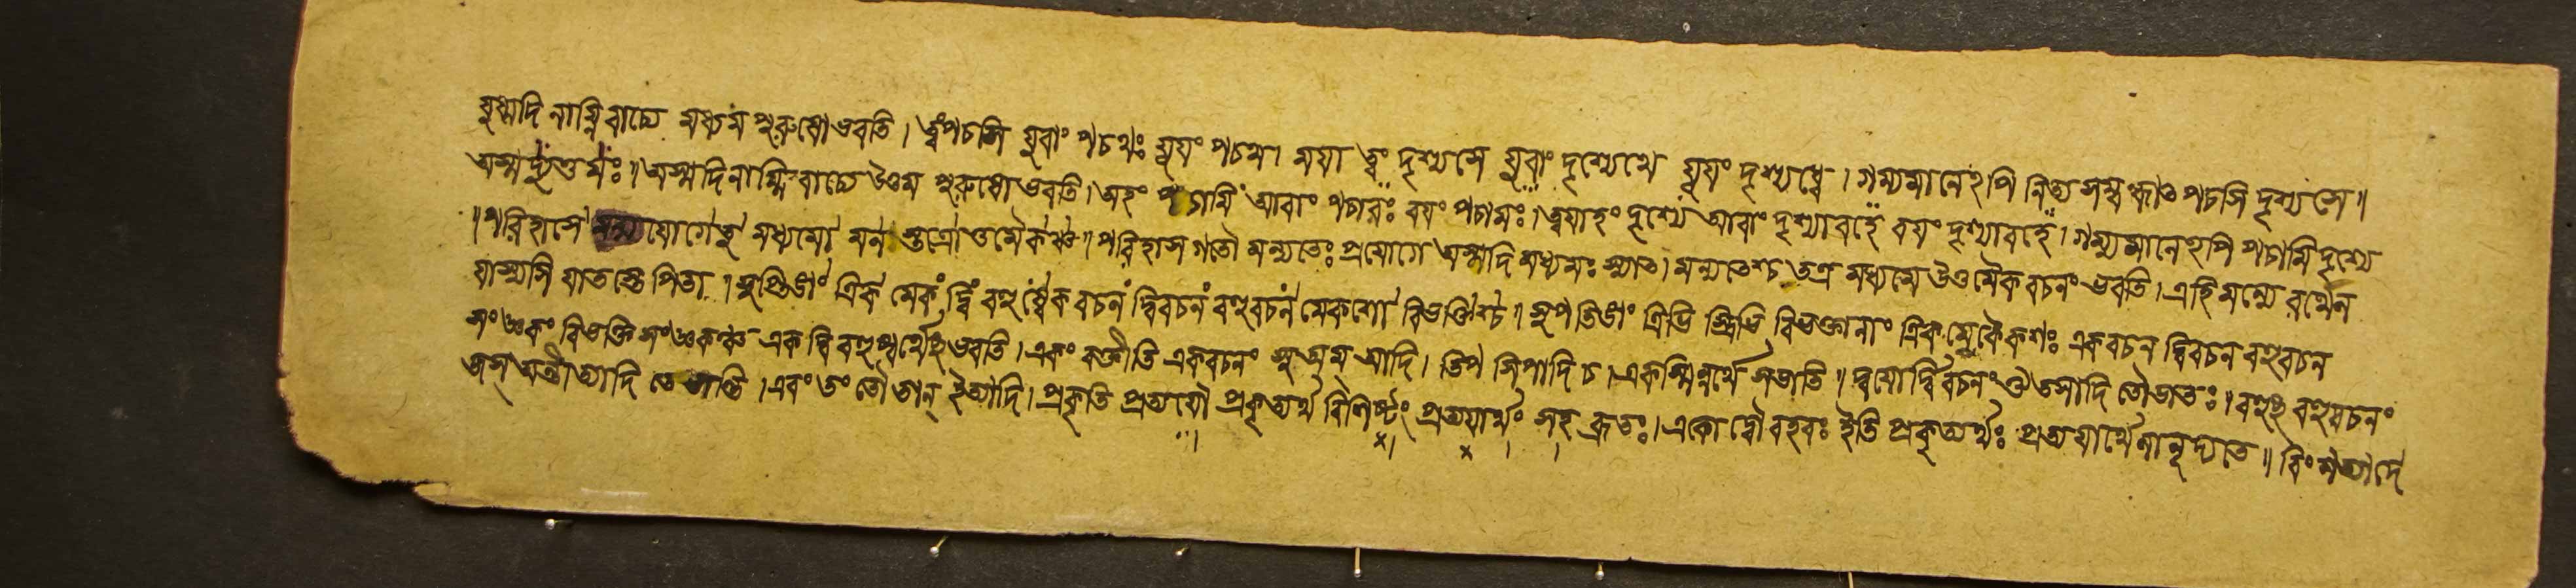 যুষ্মদি নাম্নি বাচ্যে মধ্যম পুরুষো ভবতি। ত্বং পচসি যুবাং পচথঃ যূয়ং পচথ। ময়া ত্বং দৃশ্যসে যুবাং দৃশ্যেথে যূয়ং দৃশ্যধ্বে। গম্যমানেঽপি নিত্য সম্বন্ধাৎ পচসি দৃশ্যসে॥
অস্মদ্যুত্তমঃ॥ অস্মদি নাম্নি বাচ্যে উত্তম পুরুষো ভবতি। অহং পচামি আবাং পচাবঃ বয়ং পচামঃ। ত্বয়াহং দৃশ্যে আবাং দৃশ্যাবহে বয়ং দৃশ্যামহে। গম্যমানেঽপি পচামি দৃশ্যে
॥পরিহাসে মন্য যোগেতু মধ্যমো মন স্তত্রোত্তমৈকঞ্চ॥ পরিহাস গতৌ মন্যতেঃ প্রয়োগে অস্মদি মধ্যমঃ স্যাৎ। মন্যতেশ্চ তত্র মধ্যমে উত্তমৈক বচনং ভবতি। এহি মন্যে রথেন
যাস্যসি যাতস্তে পিতা। সুপ্তিঙাং ত্রিক মেকং দ্বি বহুষ্বেক বচনং দ্বিবচনং বহুবচন মেকশো বিভক্তিশ্চ॥ সুপ্ তিঙাং ত্রিভি স্ত্রিভি বিভক্তানাং ত্রিক মেকৈকশঃ একবচন দ্বিবচন বহুবচন
সংজ্ঞকং বিভক্তি সংজ্ঞকঞ্চ এক দ্বি বহুষ্বর্থেষু ভবতি। একং বক্তীতি একবচনং সু অম্ আদি। তিপ্ সিপাদি চ। একস্মিন্নর্থে সভাতি॥ দ্বয়োর্দ্বিবচনং ঔ তসাদি তৌ ভাতঃ। বহুষু বহুবচনং
জস্ অন্তীত্যাদি তে ভান্তি। এবং তং তৌ তান্ ইত্যাদি। প্রকৃতি প্রত্যয়ৌ প্রকৃত্যর্থ বিশিষ্টং প্রত্যয়ার্থং সহ ব্রূতঃ। একো দ্বৌ বহবঃ ইতি প্রকৃত্যর্থঃ প্রত্যয়ার্থেণানূদ্যতে॥ বিংশত্যাদে